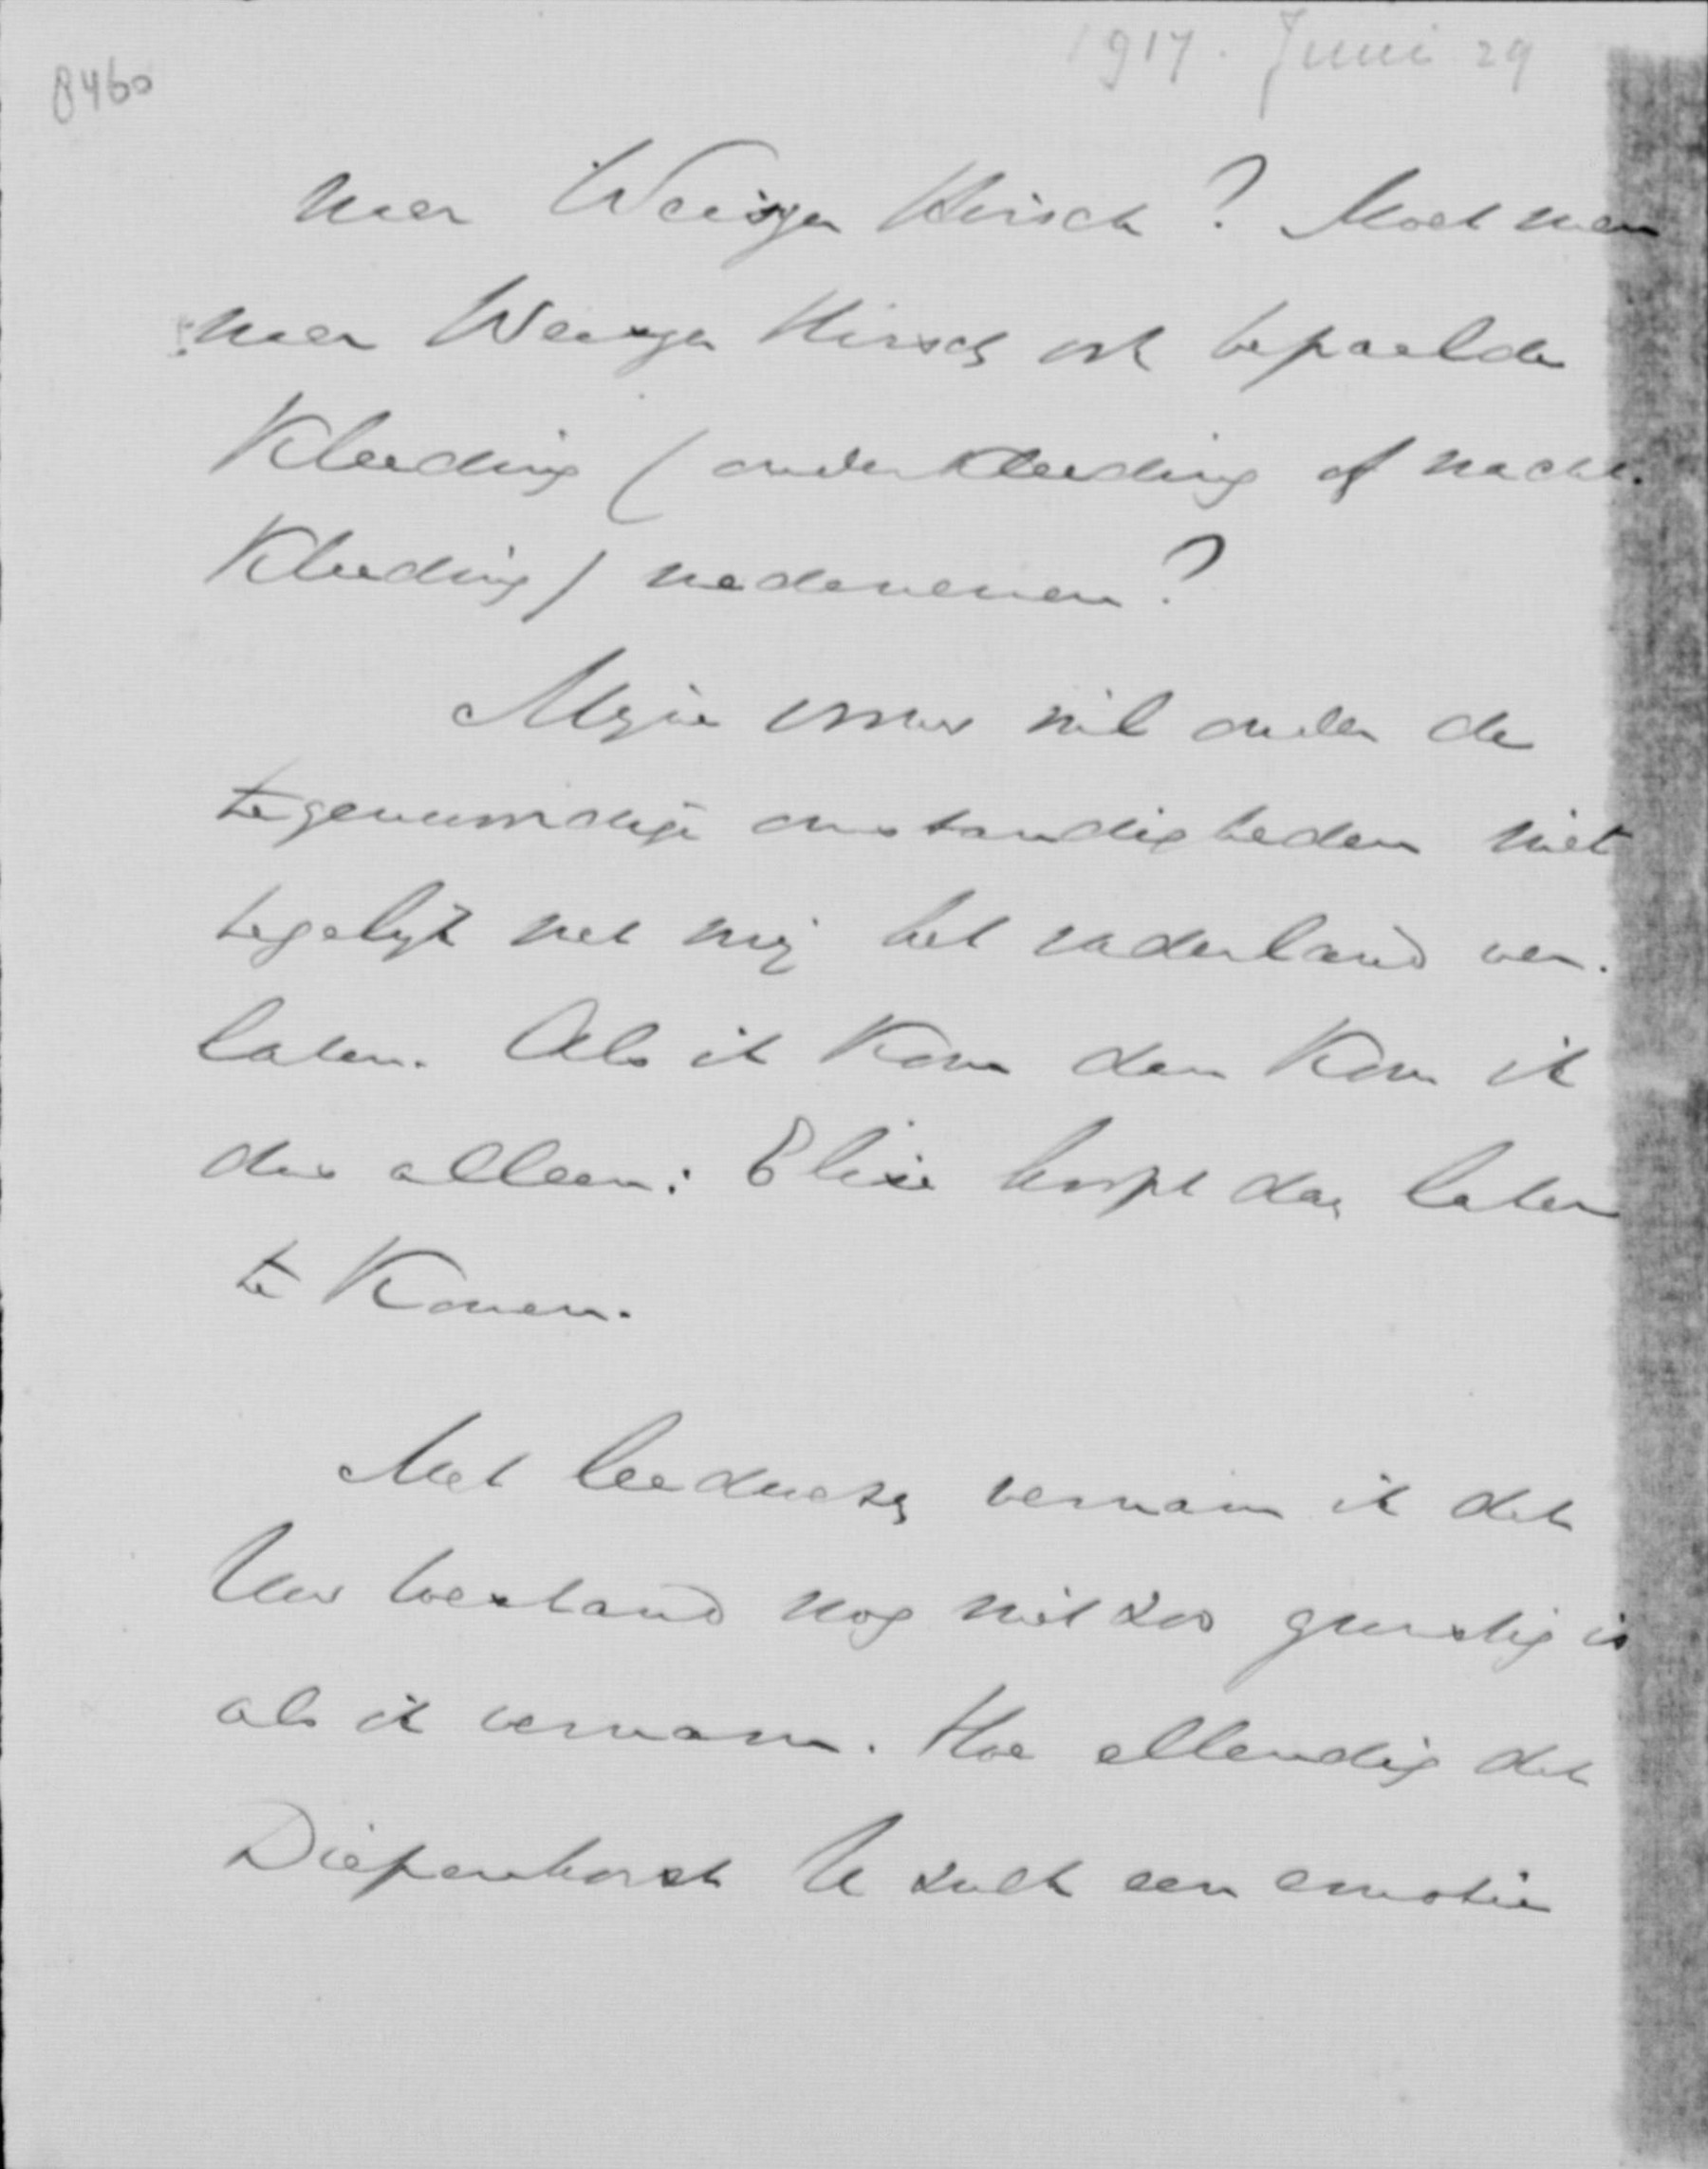 8460
1917. Juni 29
naar Weisser Hirsch? Moet men
naar Weisser Hirsch ook bepaalde
Kleeding (onderkleeding of nacht-
Kleeding) medenemen?
Mijne vrouw wil onder de
tegenwoordige omstandigheden niet
tegelijk met mij het vaderland ver-
laten. Als ik kom dan kom ik
dus alleen: Elise hoopt dan later
te komen.
Met leedwezen vernam ik dat
Uw toestand nog niet zoo gunstig is
als ik vernam. Hoe ellendig dat
Diepenhorst U zulk een emotie